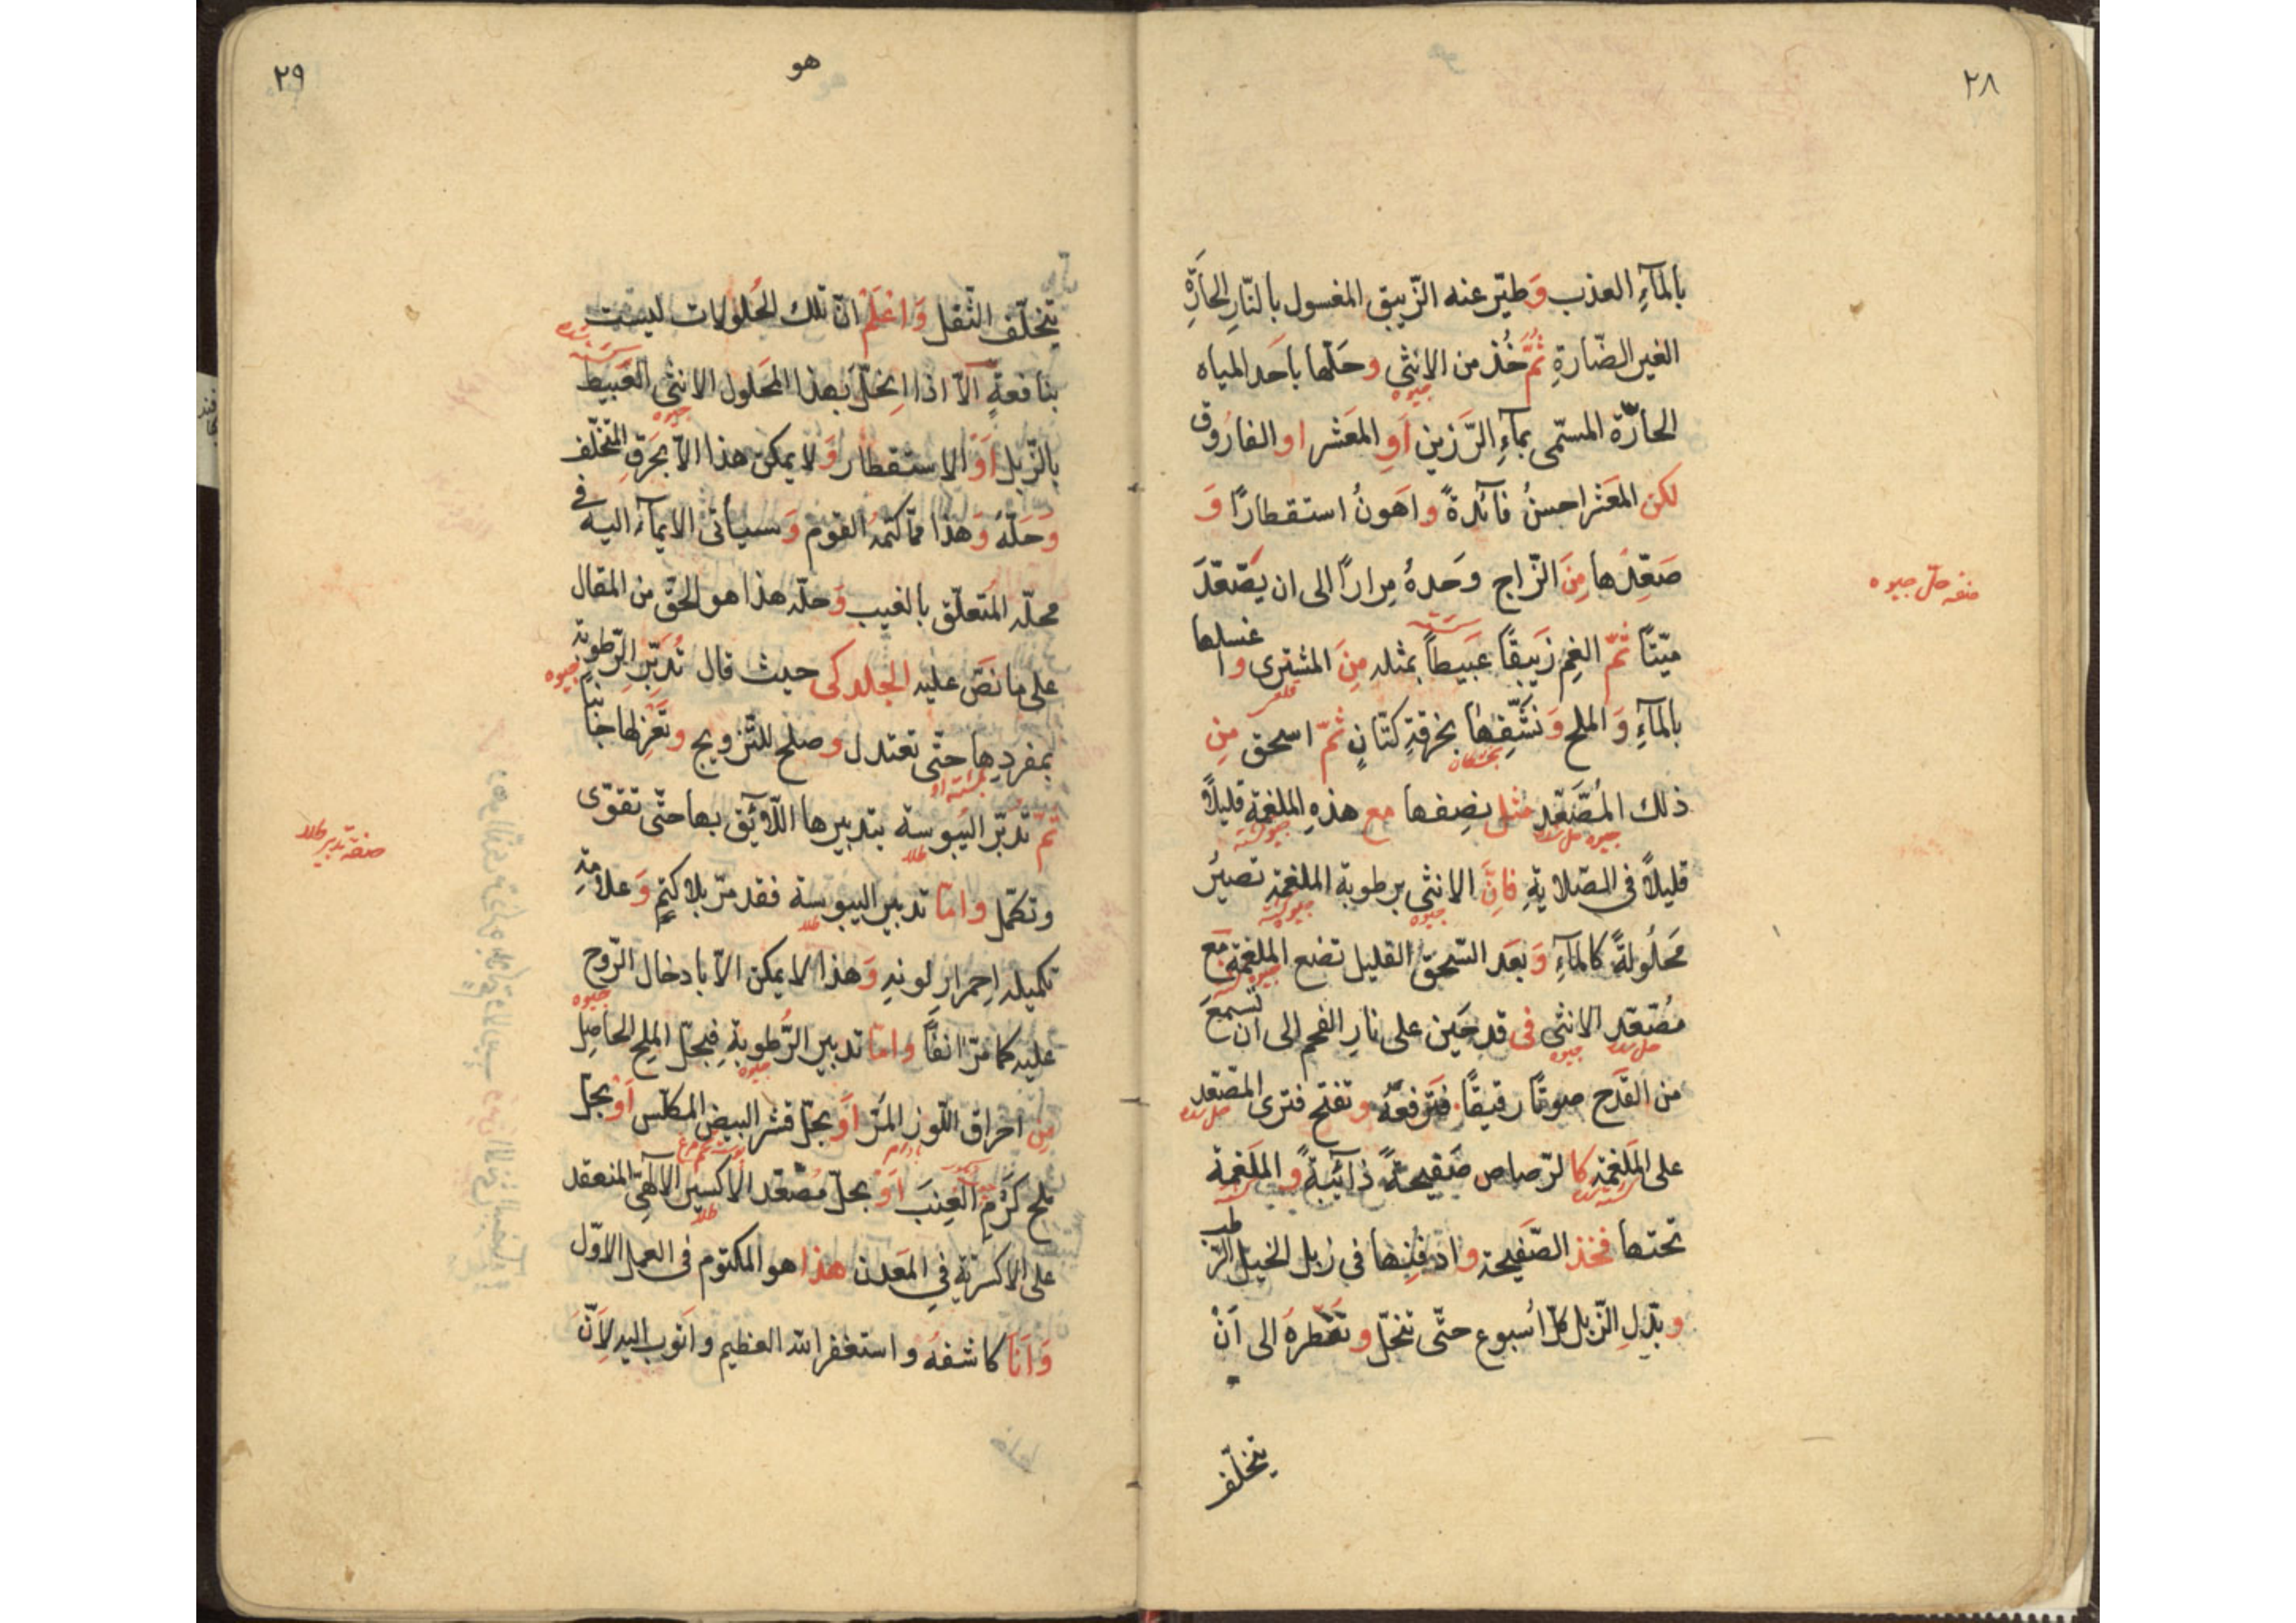 ٢٨
بالمآءِ العذب وَطيّر عنه الزّيبق المغسول بالنّارِ الحآرّةِ
الغير الضّارةِ ثُمَّ خُذ من الانثى وحَلّها باَحَد المياه
جيوه
الحآرّة المسمّى بمآءِ الرّزين اَوِ المعَشر او الفارُوق
لكن المعَشر احسنُ فآئدةً واهَونُ استقطارًا وَ
صَعِّدَها مِنَ الزّاج وحَدهُ مِرارًا الى ان يصّعّدَ
صنعه حلّ جيوه
ميّتًا ثمّ الغِم زَيبَقًا عَبَيطاً بمثله مِنَ المشترى واغسلها
قلعى
بالمآءِ وَالملح وَنَشِّفها بخرقةِ كتّانٍ ثمّ اسحق مِن
ذلك المُصَّعّدِ مثل نِصِفها مع هذهِ الملغمة قليلاً
قليلاً فى الصّلايةِ فاِنَّ الانثى برطوبة الملغمة تصيرُ
جيوه
مَحَلُولةً كالمآءِ وَبَعَد السّحق القليل تضع الملغمة مَع
مُصّعّدِ الانثى فى قدحَين على نارِ الفحم الى ان تسمعَ
حل شده جيوه
من القَدَح صوتًا رقيقًا فتَرفعَهُ وتفتح فترى المصّعّد
حل شده
على المَلغمة كالرّصاص صَفيحةً ذآئبةً والملَغمة
تحتها فخذ الصّفَيحة وادفِنها فى زبل الخيل الرّطب
وبَدّلِ الزّبل كلّ اُسبوع حتّى تنحَلّ وتقطرهُ الى اَنْ
يتخلّف
٢٩
هو
يتخلّف الثّقل وَاعْلَمْ انّ تلك الحُلولات ليست
بنافعةٍ الّا اذا اِنحَلّ بهذا المحَلول الانثى العَبيط
جيوه
بالزّبل اَوْ الاستقطار وَلا يمكن هذا الّا بحَرقِ المتخلّف
وَحَلّهَ وَهذا ممّا كتمهُ القوم وَسيأتى الايمآء اليه فى
محلّه المتَعلّق بالغيب وَحلّه هذا هو الحقّ من المقال
على ما نَصَّ عليه الجلدكى حيث قال تُدَبِّر الرّطوبة
جيوه
بمفردِها حتّى تعتدل وصلح للتّزويج وتَعَزِلها جانبًا
ثمّ تدَبّر اليُبوسة بتدبيرها اللّآئق بها حتّى تقوّى
طلا
صنعة تدبير طلا
وتكمّل وامّا تدبير اليبوسة فقد مرّ بلا كتمٍ وَعلامةِ
طلا
تكميله اِحمرارِ لونهِ وَهذا لا يمكن الّا بادخال الرّوح
جيوه
عليه كما مرّ انفًا وامّا تدبير الرُّطوبةِ فبحَلّ الملحِ الحاصِل
جيوه
مِن احراق اللّوز المُرّ اَوْ بحَلّ قشر البيض المكلّس اَوْ بحَلّ
بادام پوست تخم مرغ
ملح كَرْمِ العِنبَ اَوْ بحَلّ مُصّعّد الاكسير الآلهىّ المنعقد
طلا
على الاكسريّة فى المَعَدن هذا هو المكتوم فى العمل الاوّل
وَاَنَا كاشفهُ واستغفر الله العظيم واتوب اليه لِاَنّ